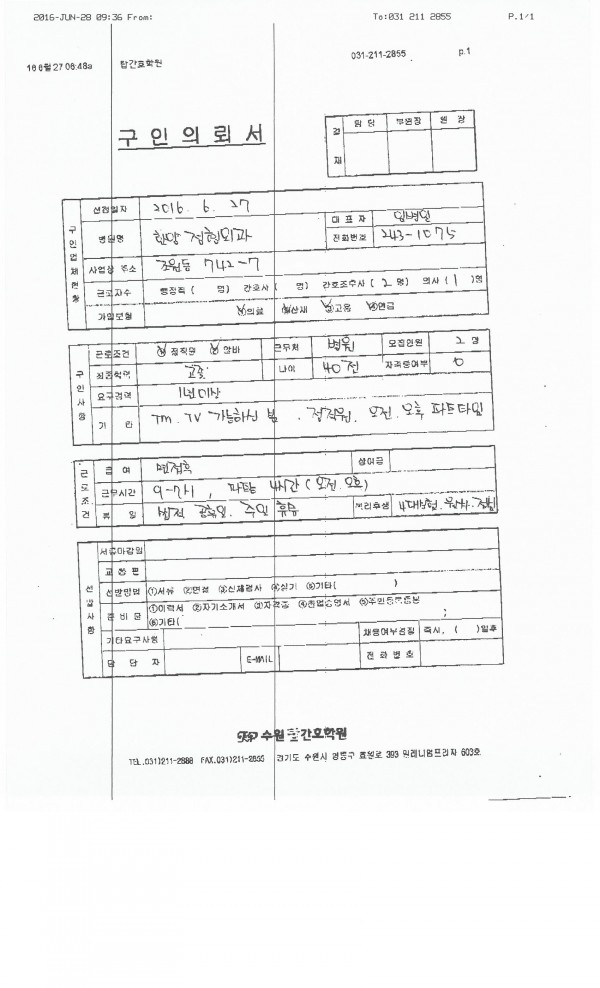 2016-JUN-28 09:36 From: To:031 211 2855 P.1/1
16 6월 27 06:48a 탑간호학원 031-211-2855 p.1
구인의뢰서
결재 담당 부원장 원장
구인업체현황
신청일자 2016. 6. 27
병원명 한양 정형외과 대표자
전화번호 243-1075
사업장 주소 조원동 742-7
근로자수 행정직 ( 명) 간호사 ( 명) 간호조무사 ( 2 명) 의사 ( 1 )명
가입보험 의료 산재 고용 연금
구인사항
근로조건 정직원 알바 근무처 병원 모집인원 2 명
최종학력 고졸 나이 40 전 자격증여부 0
요구경력 1년이상
기 타 IM. IV 가능하신 분. 정직원. 오전. 오후 파트타임
근로조건
급 여 면접후 상여금
근무시간 9-7시, 파트 4시간 (오전. 오후)
휴 일 법적 공휴일. 주일 휴무 복리후생 4대보험.
선발사항
서류마감일
교통편
선발방법 ①서류 ②면접 ③신체검사 ④실기 ⑤기타( )
준비물 ①이력서 ②자기소개서 ③자격증 ④졸업증명서 ⑤주민등록등본
⑥기타( );
기타요구사항 채용여부결정 즉시, ( )일후
담 당 자 E-MAIL 전화번호
수원 탑간호학원
TEL.031)211-2888 FAX.031)211-2855 경기도 수원시 영통구 효원로 393 밀레니엄프라자 603호